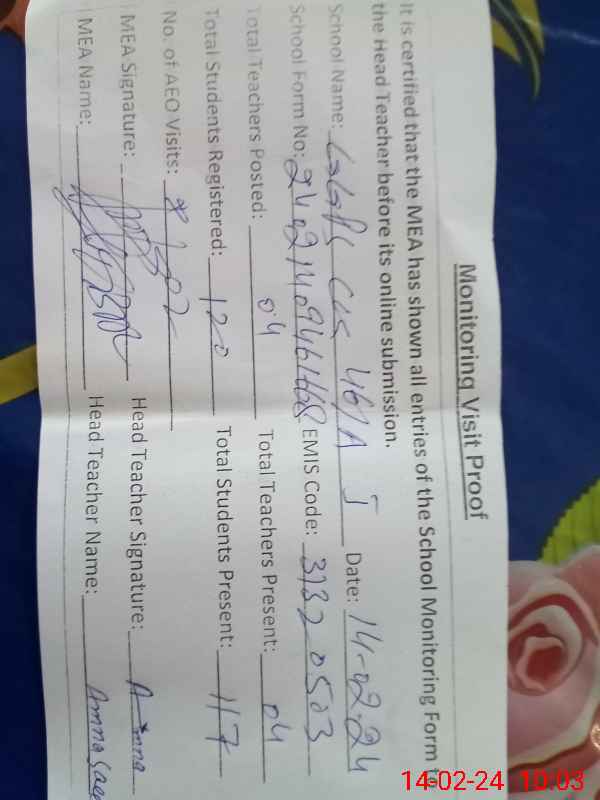 Monitoring Visit Proof
It is certified that the MEA has shown all entries of the School Monitoring Form to
the Head Teacher before its online submission.
School Name: GGPS CCS 46/A Date: 14-02-24
School Form No: EMIS Code: 31320503
Total Teachers Posted: 04 Total Teachers Present: 04
Total Students Registered: 120 Total Students Present: 117
No. of AEO Visits:
MEA Signature: Head Teacher Signature: Amna
MEA Name: Head Teacher Name: Amna Saee
14-02-24 10:03